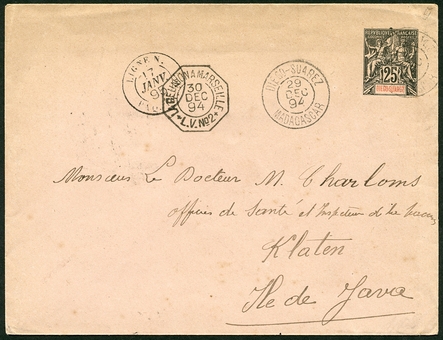 LIGNE N.
17
JANV
95
LA REUNION A MARSEILLE
30
DEC
94
L.V. No2
DIEGO-SUAREZ
29
DEC
94
MADAGASCAR
REPUBLIQUE FRANCAISE
25
DIEGO-SUAREZ
Monsieur Le Docteur M. Charloms
officier de Santé et Inspecteur
Klaten
Ile de Java